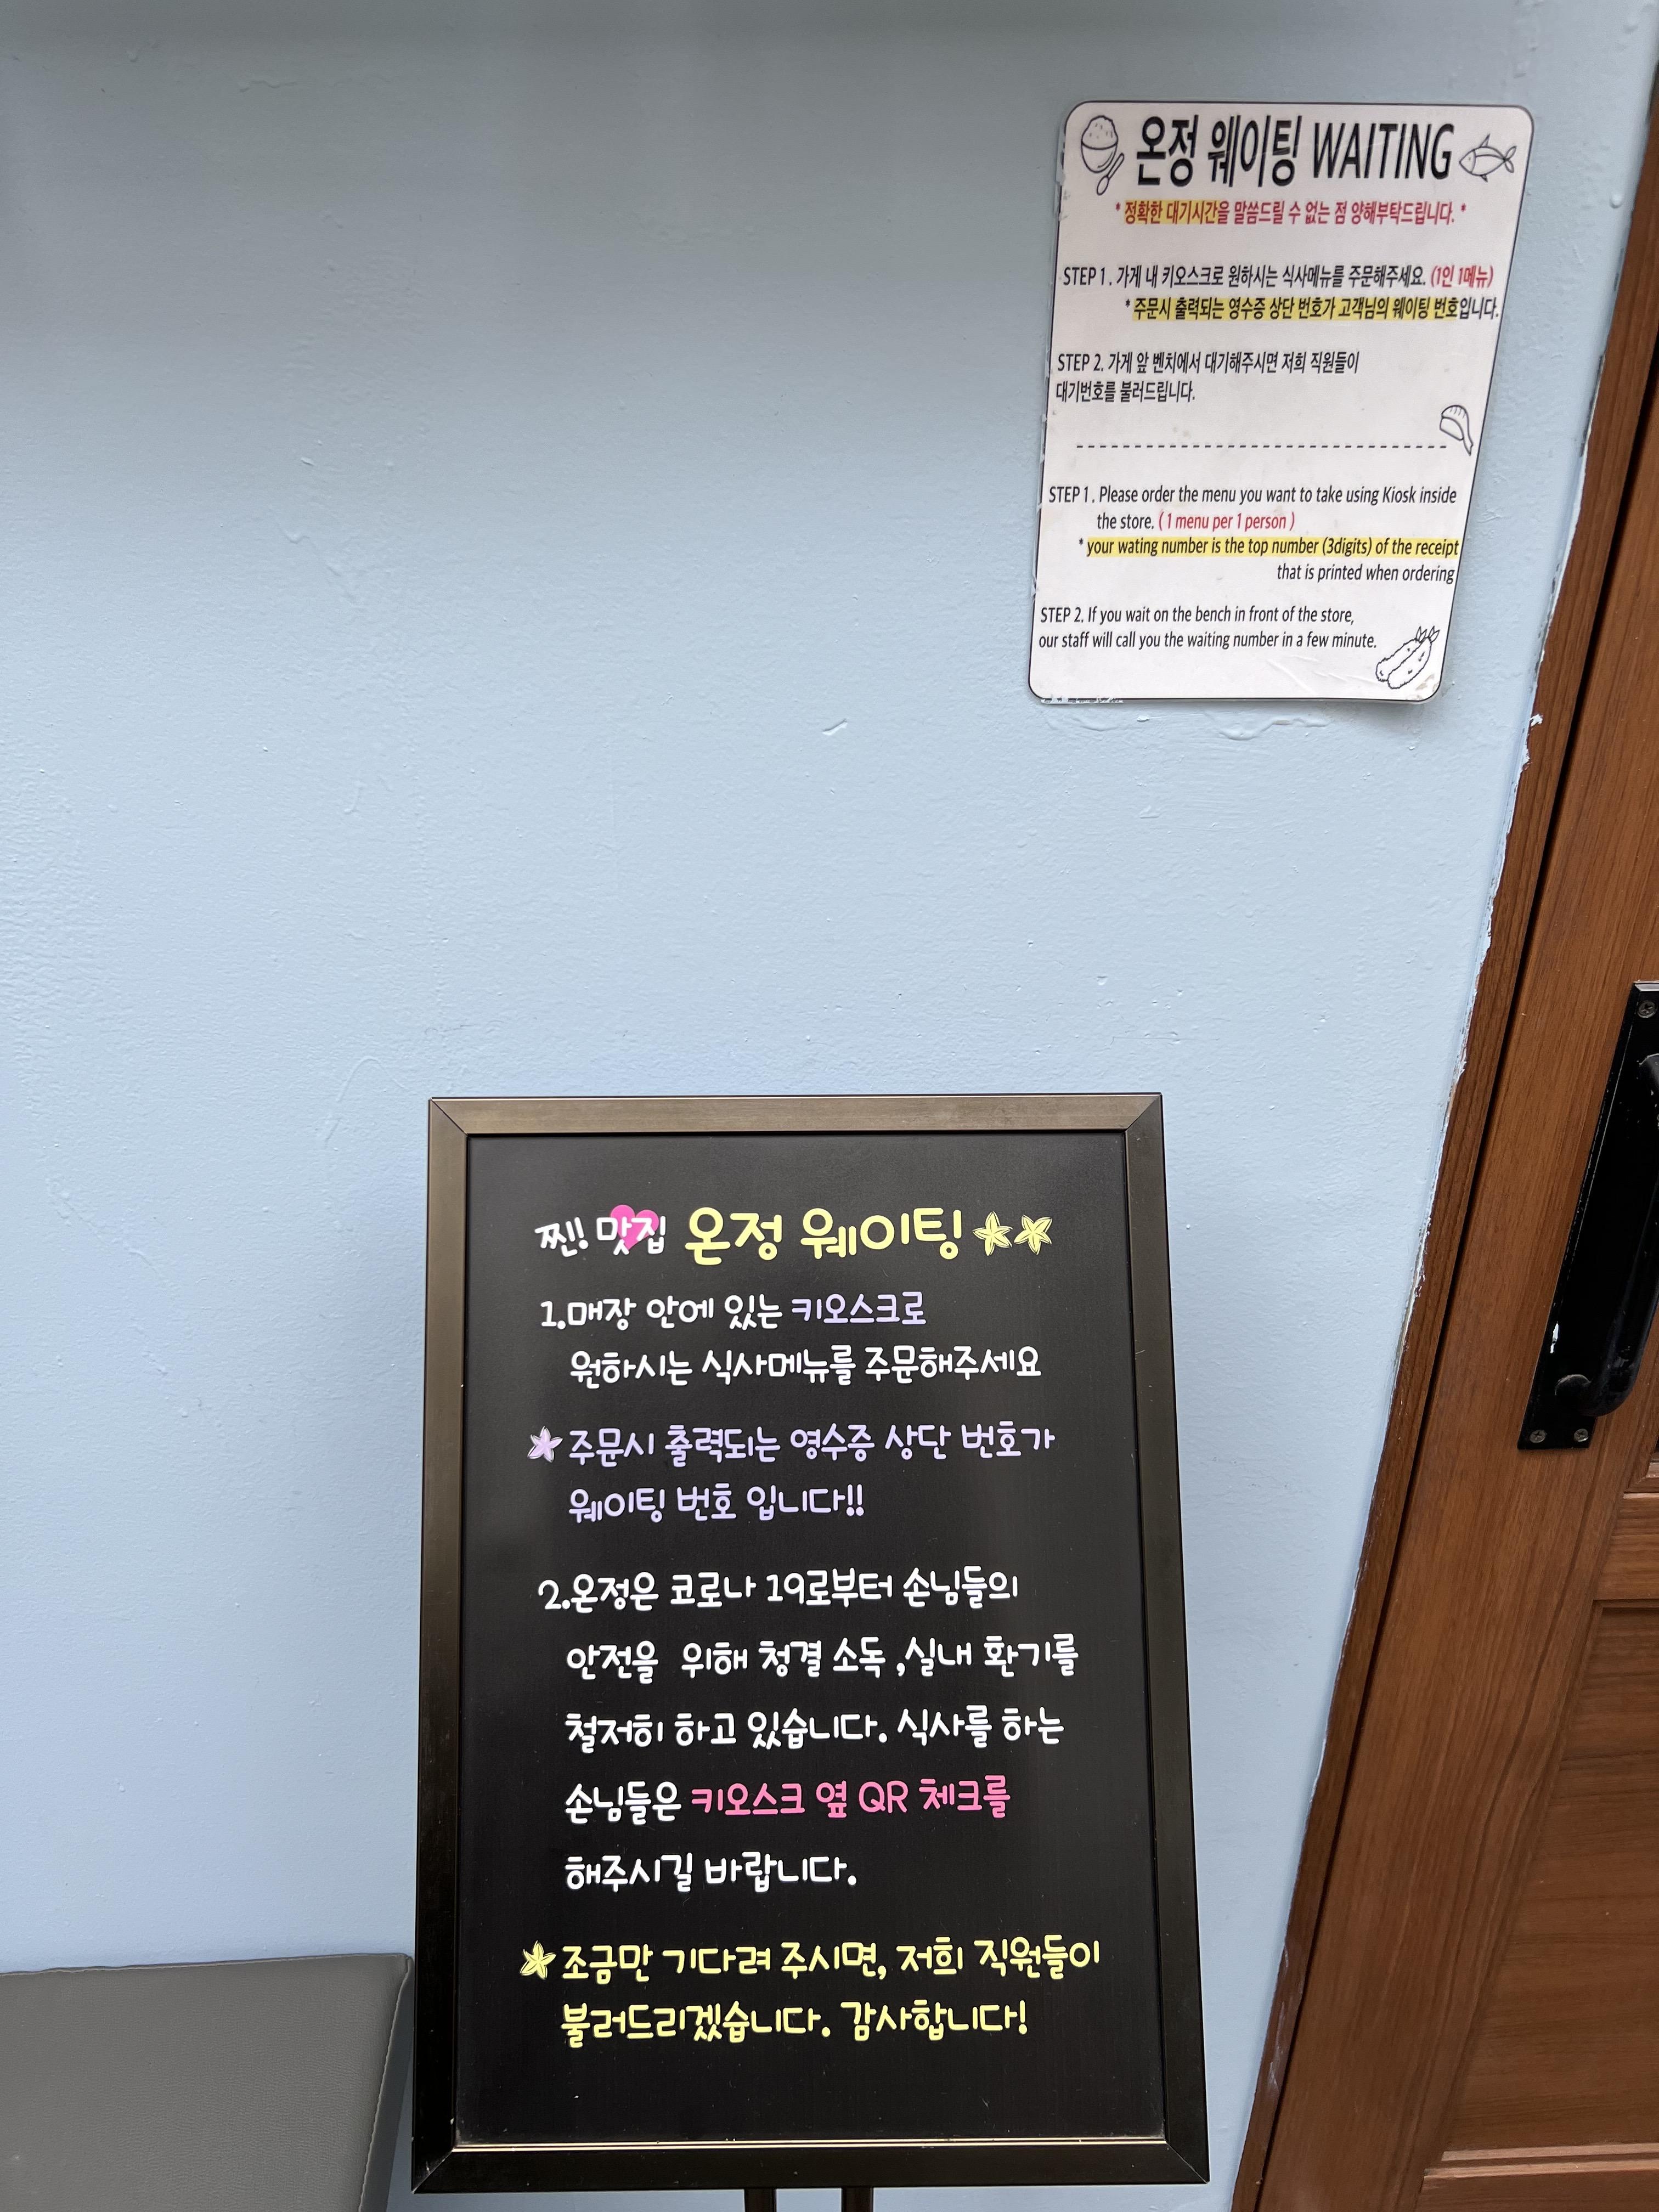 온정 웨이팅 WAITING
* 정확한 대기시간을 말씀드릴 수 없는 점 양해부탁드립니다. *
STEP 1. 가게 내 키오스크로 원하시는 식사메뉴를 주문해주세요. (1인 1메뉴)
* 주문시 출력되는 영수증 상단 번호가 고객님의 웨이팅 번호입니다.
STEP 2. 가게 앞 벤치에서 대기해주시면 저희 직원들이
대기번호를 불러드립니다.
STEP 1. Please order the menu you want to take using Kiosk inside
the store. ( 1 menu per 1 person )
* your wating number is the top number (3digits) of the receipt
that is printed when ordering
STEP 2. If you wait on the bench in front of the store,
our staff will call you the waiting number in a few minute.
찐! 맛집 온정 웨이팅
1.매장 안에 있는 키오스크로
원하시는 식사메뉴를 주문해주세요
주문시 출력되는 영수증 상단 번호가
웨이팅 번호 입니다!!
2.온정은 코로나 19로부터 손님들의
안전을 위해 청결 소독 ,실내 환기를
철저히 하고 있습니다. 식사를 하는
손님들은 키오스크 옆 QR 체크를
해주시길 바랍니다.
조금만 기다려 주시면, 저희 직원들이
불러드리겠습니다. 감사합니다!